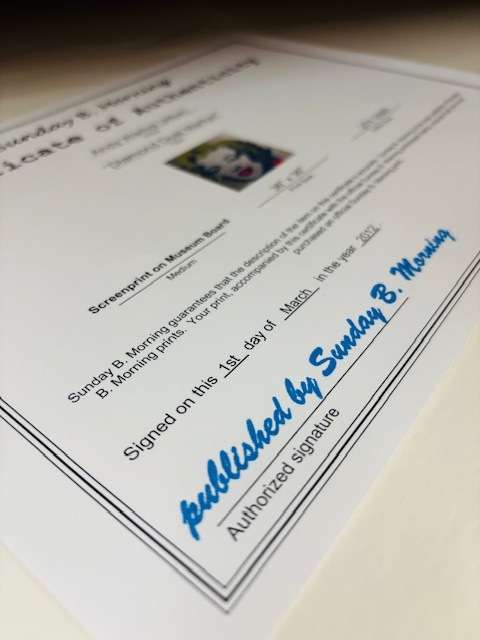 Sunday B. Morning
icate of Authenticity
Diamond Dust Marilyn
Screenprint on Museum Board
Medium
Sunday B. Morning guarantees that the description of the item on this certificate is
B. Morning prints. Your print, accompanied by this certificate with the official Sunday B. Morning
purchased an official Sunday B. Morning
Signed on this 1st day of March in the year 2012.
published by Sunday B. Morning
Authorized signature